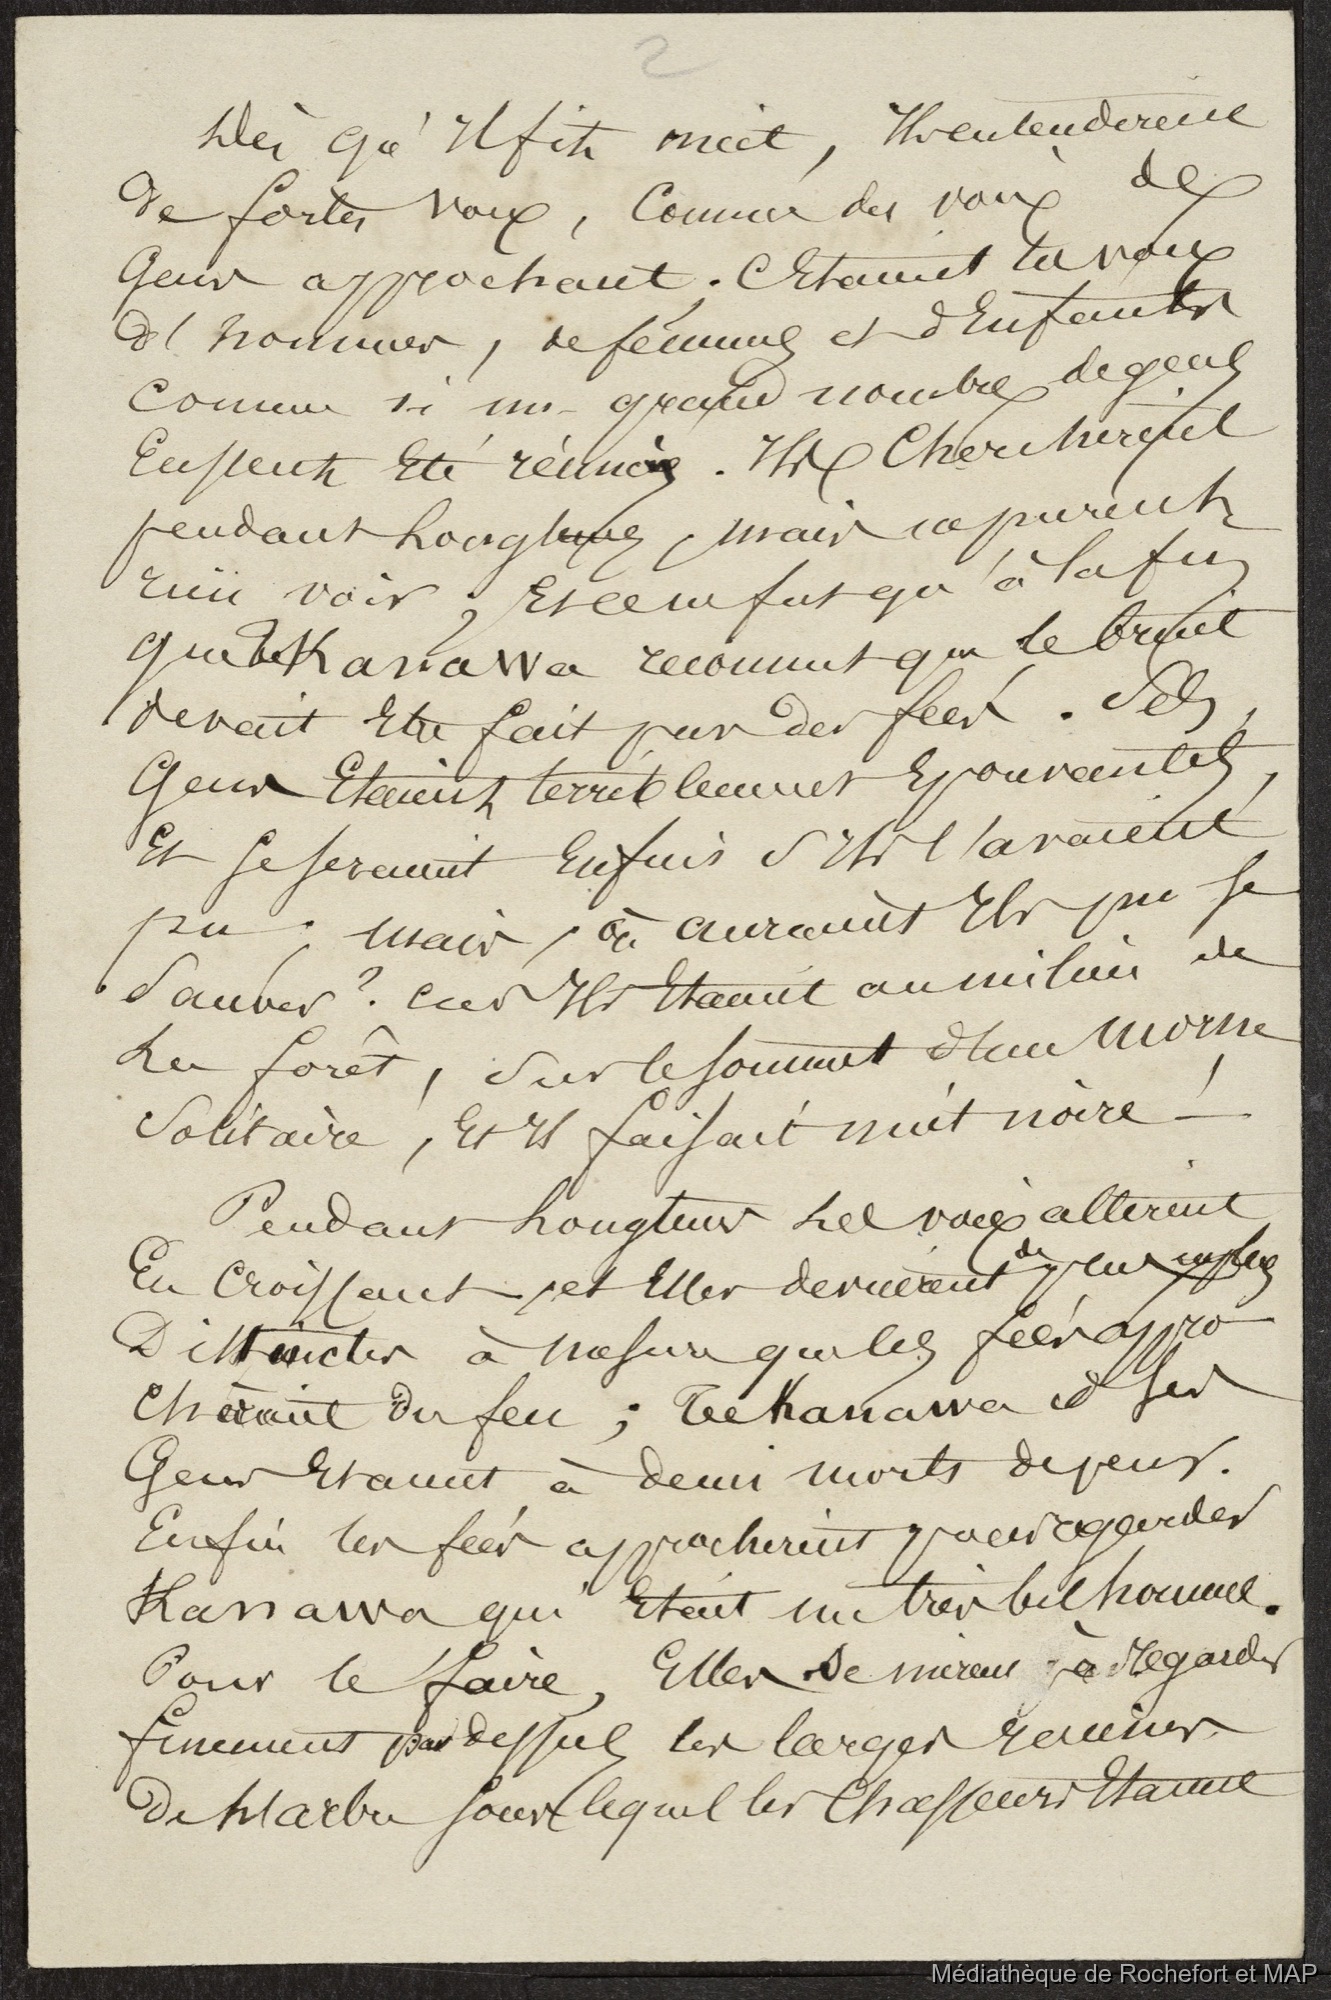 2
Dès qu'Il fit nuit, Ils entendirent
de fortes voix, Comme des voix de
Gens approchant. C'Etaient la voix
d'hommes, de femmes et d'Enfants
comme si un grand nombre de gens
Eussent Eté réunis. Ils Cherchèrent
pendant longtemps, mais ne purent
rien voir; Et ce ne fut qu'à la fin
que Te Kanawa reconnut que le bruit
devait Etre fait par des fées. Ses
Gens Etaient terriblement Epouvantés,
Et se seraient Enfuis s'Ils l'avaient
pu; mais, où auraient Ils pu se
Sauver? car Ils Etaient au milieu de
La forêt, Sur le sommet d'un morne
Solitaire, Et Il faisait nuit noire! —
Pendant Longtems Les voix allèrent
En Croissant, et Elles devinrent de plus en plus
Distinctes à mesure que les fées appro-
chèraient du feu; Te Kanawa et Ses
Gens Etaient à demi morts de peur.
Enfin les fées approchèrent pour regarder
Kanawa qui Etait un très bel homme.
Pour le faire, Elles Se mirent à Regarder
finement par dessus les larges racines
De l'Arbre sous lequel les Chasseurs Etaient
Médiathèque de Rochefort et MAP